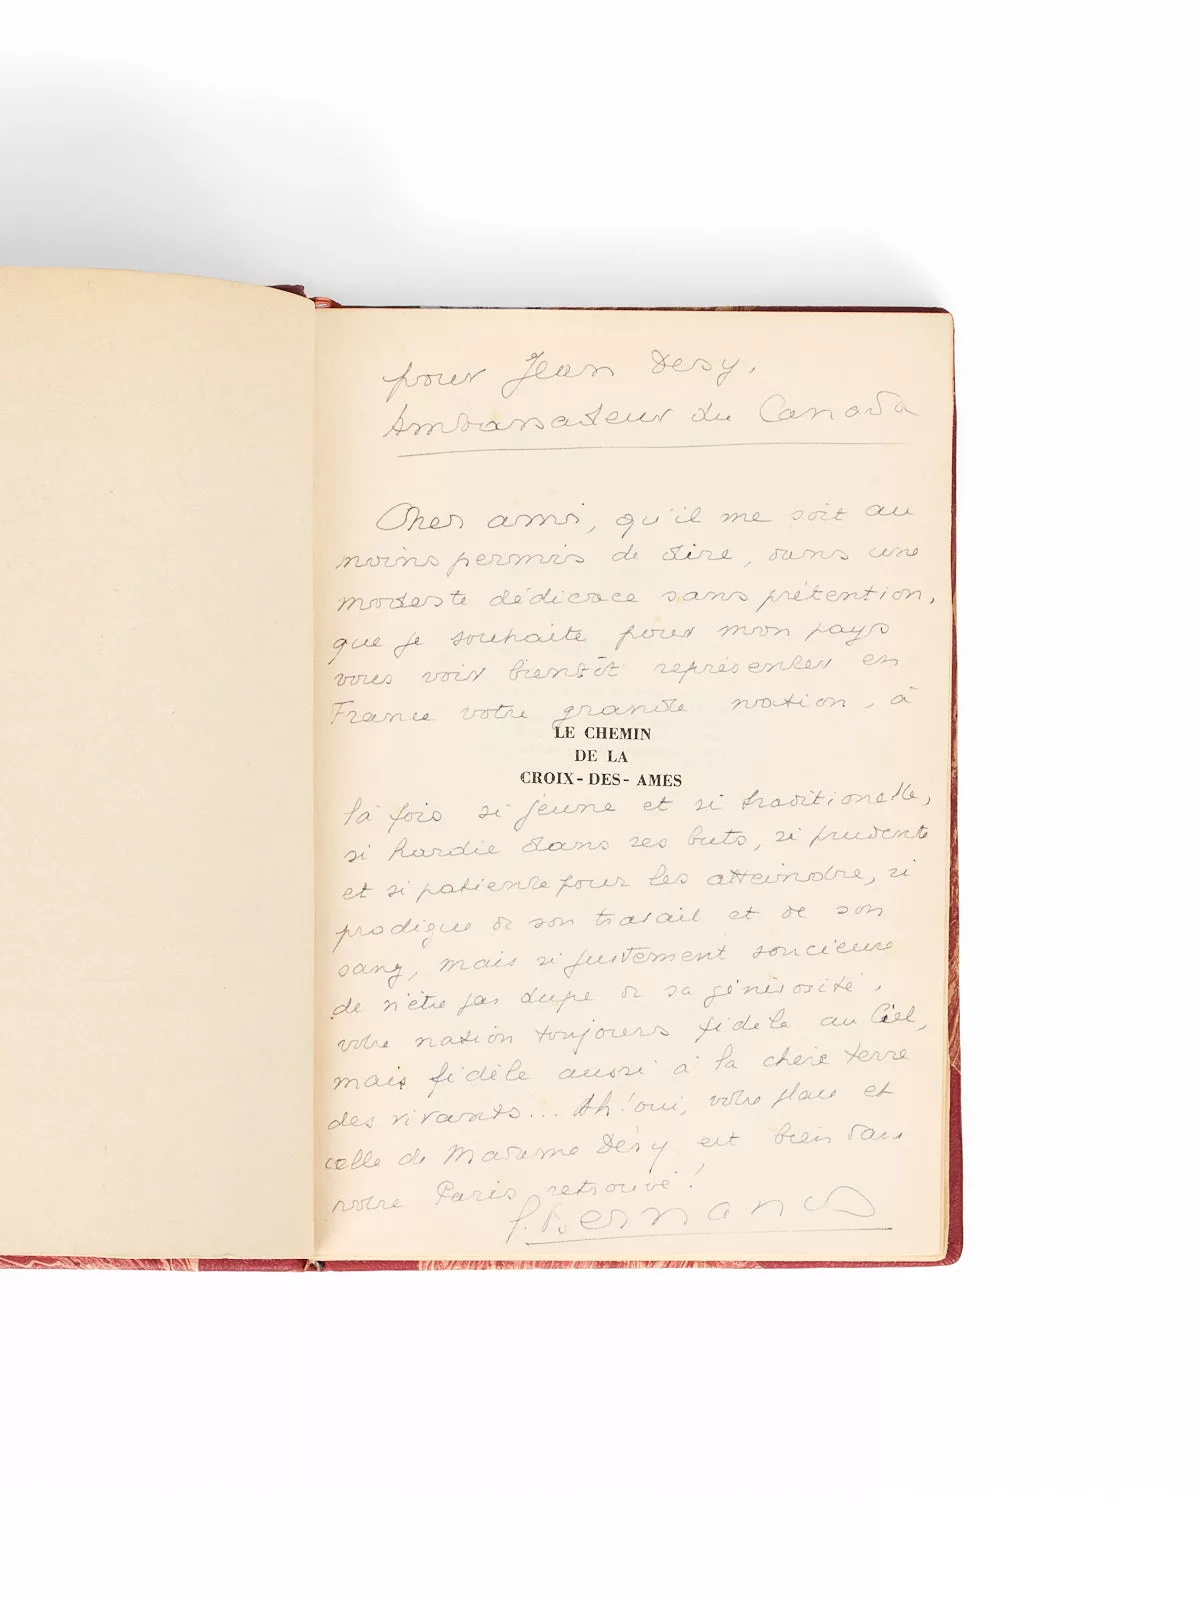 pour Jean Desy,
Ambassadeur du Canada
Cher ami, qu'il me soit au
moins permis de dire, dans une
modeste dédicace sans prétention,
que je souhaite pour mon pays
vous voir bientôt représenter en
France votre grande nation, à
LE CHEMIN
DE LA
CROIX-DES-AMES
la fois si jeune et si traditionelle,
si hardie dans ses buts, si prudente
et si patiente pour les atteindre, si
prodigue de son travail et de son
sang, mais si justement soucieuse
de n'être pas dupe de sa générosité,
votre nation toujours fidèle au Ciel,
mais fidèle aussi à la chère terre
des vivants... Ah! oui, votre place et
celle de Madame Désy est bien dans
notre Paris retrouvé!
G. Bernanos